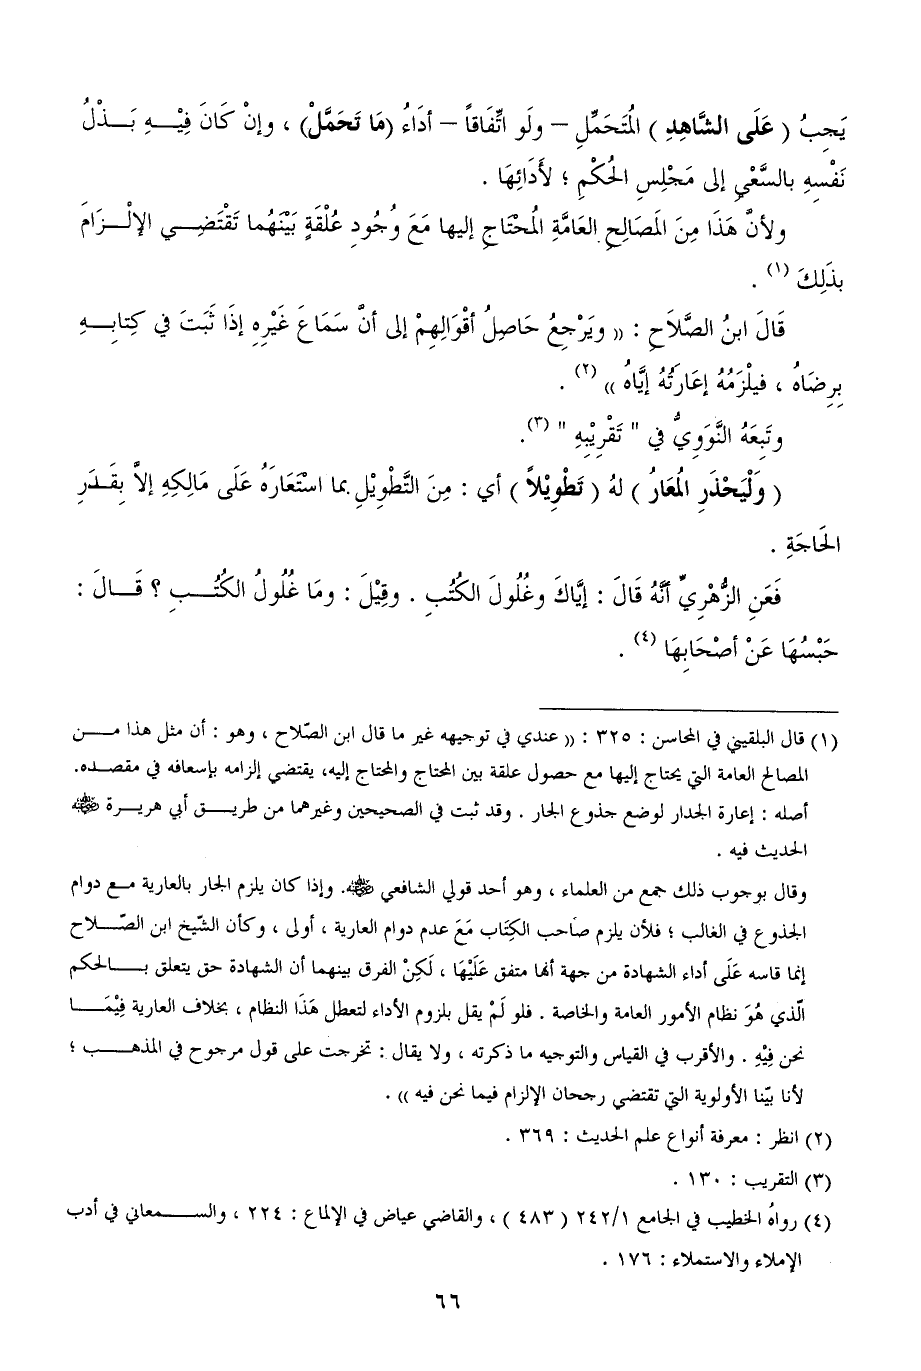 يَجِبُ ( عَلَى الشَّاهِدِ ) المُتَحَمِّلِ – ولَو اتِّفَاقاً – أدَاءُ (مَا تَحَمَّلْ) ، وإنْ كَانَ فِيْهِ بَذْلُ
نَفْسِهِ بالسَّعْيِ إلى مَجْلِسِ الحُكْمِ ؛ لأَدَائِهَا .
ولأنَّ هَذَا مِنَ المَصَالِحِ العَامَّةِ المُحْتَاجِ إليها مَعَ وُجُودِ عُلْقَةٍ بَيْنَهُما تَقْتَضِي الإلْزَامَ
بذَلِكَ (١) .
قَالَ ابنُ الصَّلاَحِ : (( ويَرْجِعُ حَاصِلُ أقْوَالِهِمْ إلى أنَّ سَمَاعَ غَيْرِهِ إذَا ثَبَتَ في كِتابِهِ
بِرِضَاهُ ، فيلْزَمُهُ إعَارَتُهُ إيَّاهُ )) (٢) .
وتَبِعَهُ النَّوَوِيُّ في " تَقْرِيْبِهِ " (٣).
( وَلْيَحْذَرِ المُعَارُ ) لهُ ( تَطْوِيْلاً ) أي : مِنَ التَّطْوِيْلِ بما اسْتَعَارَهُ عَلَى مَالِكِهِ إلاَّ بِقَدَرِ
الحَاجَةِ .
فَعَنِ الزُّهْرِيِّ أنَّهُ قَالَ : إيَّاكَ وغُلُولَ الكُتُبِ . وقِيْلَ : ومَا غُلُولُ الكُتُبِ ؟ قَالَ :
حَبْسُهَا عَنْ أصْحَابِهَا (٤) .
(١) قال البلقيني في المحاسن : ٣٢٥ : (( عندي في توجيهه غير ما قال ابن الصّلاح ، وهو : أن مثل هذا من
المصالح العامة التي يحتاج إليها مع حصول علقة بين المحتاج والمحتاج إليه، يقتضي إلزامه بإسعافه في مقصده.
أصله : إعارة الجدار لوضع جذوع الجار . وقد ثبت في الصحيحين وغيرهما من طريق أبي هريرة ﷺ
الحديث فيه .
وقال بوجوب ذلك جمع من العلماء ، وهو أحد قولي الشافعي ﷺ. وإذا كان يلزم الجار بالعارية مع دوام
الجذوع في الغالب ؛ فلأن يلزم صاحب الكِتَاب مَعَ عدم دوام العارية ، أولى ، وكأن الشّيخ ابن الصّلاح
إنما قاسه عَلَى أداء الشهادة من جهة أنها متفق عَلَيْهَا ، لَكِنْ الفرق بينهما أن الشهادة حق يتعلق بالحكم
الّذي هُوَ نظام الأمور العامة والخاصة . فلو لَمْ يقل بلزوم الأداء لتعطل هَذَا النظام ، بخلاف العارية فِيْمَا
نحن فِيْهِ . والأقرب في القياس والتوجيه ما ذكرته ، ولا يقال : تخرجت على قول مرجوح في المذهب ؛
لأنا بيّنا الأولوية التي تقتضي رجحان الإلزام فيما نحن فيه )) .
(٢) انظر : معرفة أنواع علم الحديث : ٣٦٩ .
(٣) التقريب : ١٣٠ .
(٤) رواهُ الخطيب في الجامع ٢٤٢/١ ( ٤٨٣ ) ، والقاضي عياض في الإلماع : ٢٢٤ ، والسمعاني في أدب
الإملاء والاستملاء : ١٧٦ .
٦٦